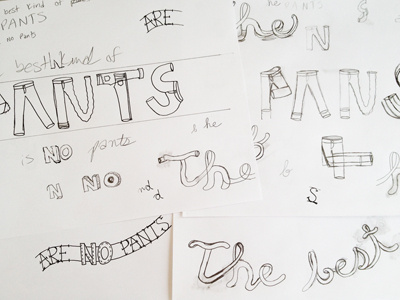 best kind of
PANTS
no pants
ARE
he PANTS
S
he
N
best kind of
N
PANTS
PANTS
is NO pants
the
N NO nd
d
The
b
S
ARE NO PANTS
The best